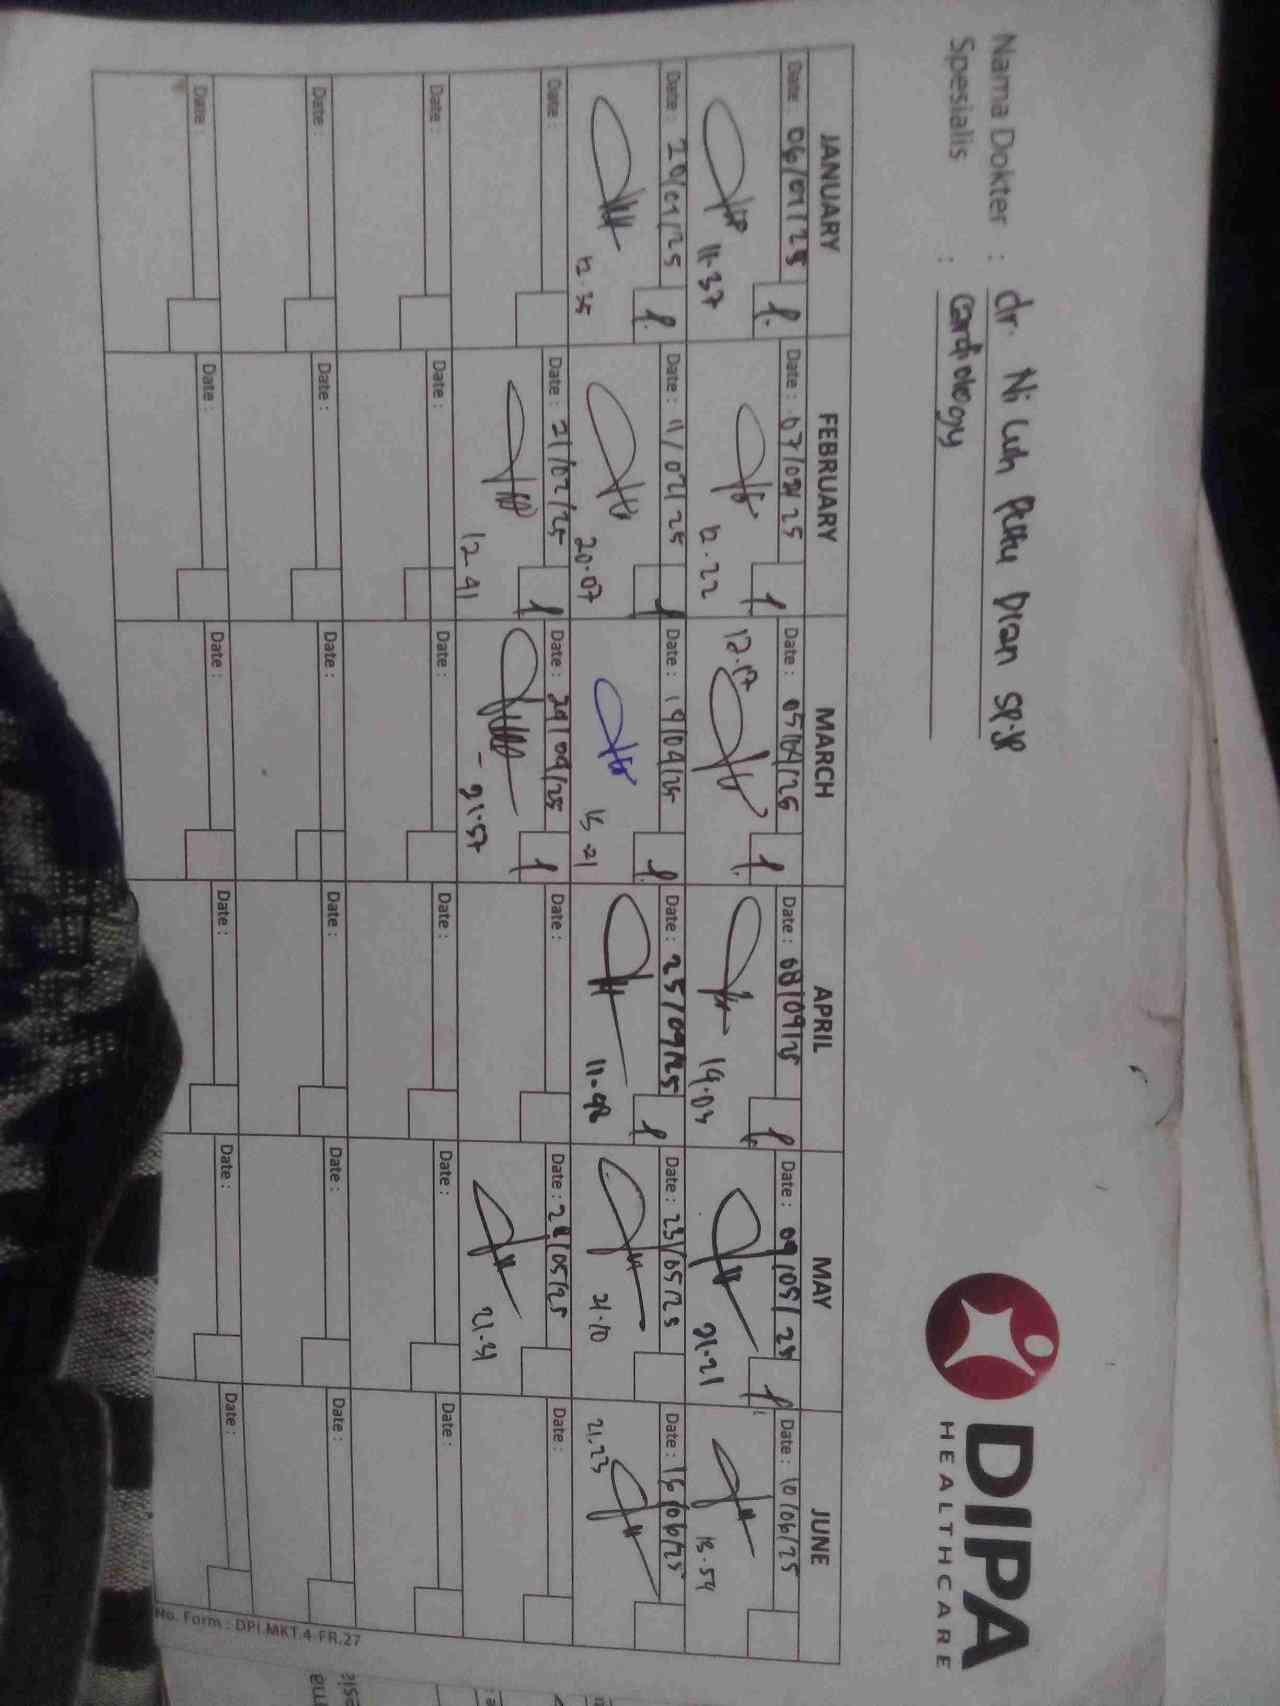 DIPA
HEALTHCARE
Nama Dokter : dr. Ni Luh Putu Dian SP.JP
Spesialis : Cardiology
JANUARY FEBRUARY MARCH APRIL MAY JUNE
Date : 06/01/25 Date : 07/02/25 Date : 05/04/25 Date : 08/04/25 Date : 09/05/25 Date : 10/06/25
11.37 12.22 12.17 14.03 21.21 13.54
Date : 20/01/25 Date : 11/02/25 Date : 19/04/25 Date : 25/04/25 Date : 23/05/25 Date : 16/06/25
12.35 20.07 15.21 11.48 21.10 21.23
Date : Date : 21/02/25 Date : 24/04/25 Date : Date : 28/05/25 Date :
12.41 21.57 21.31
Date : Date : Date : Date : Date : Date :
Date : Date : Date : Date : Date : Date :
Date : Date : Date : Date : Date : Date :
No. Form : DPI.MKT.4-FR.27